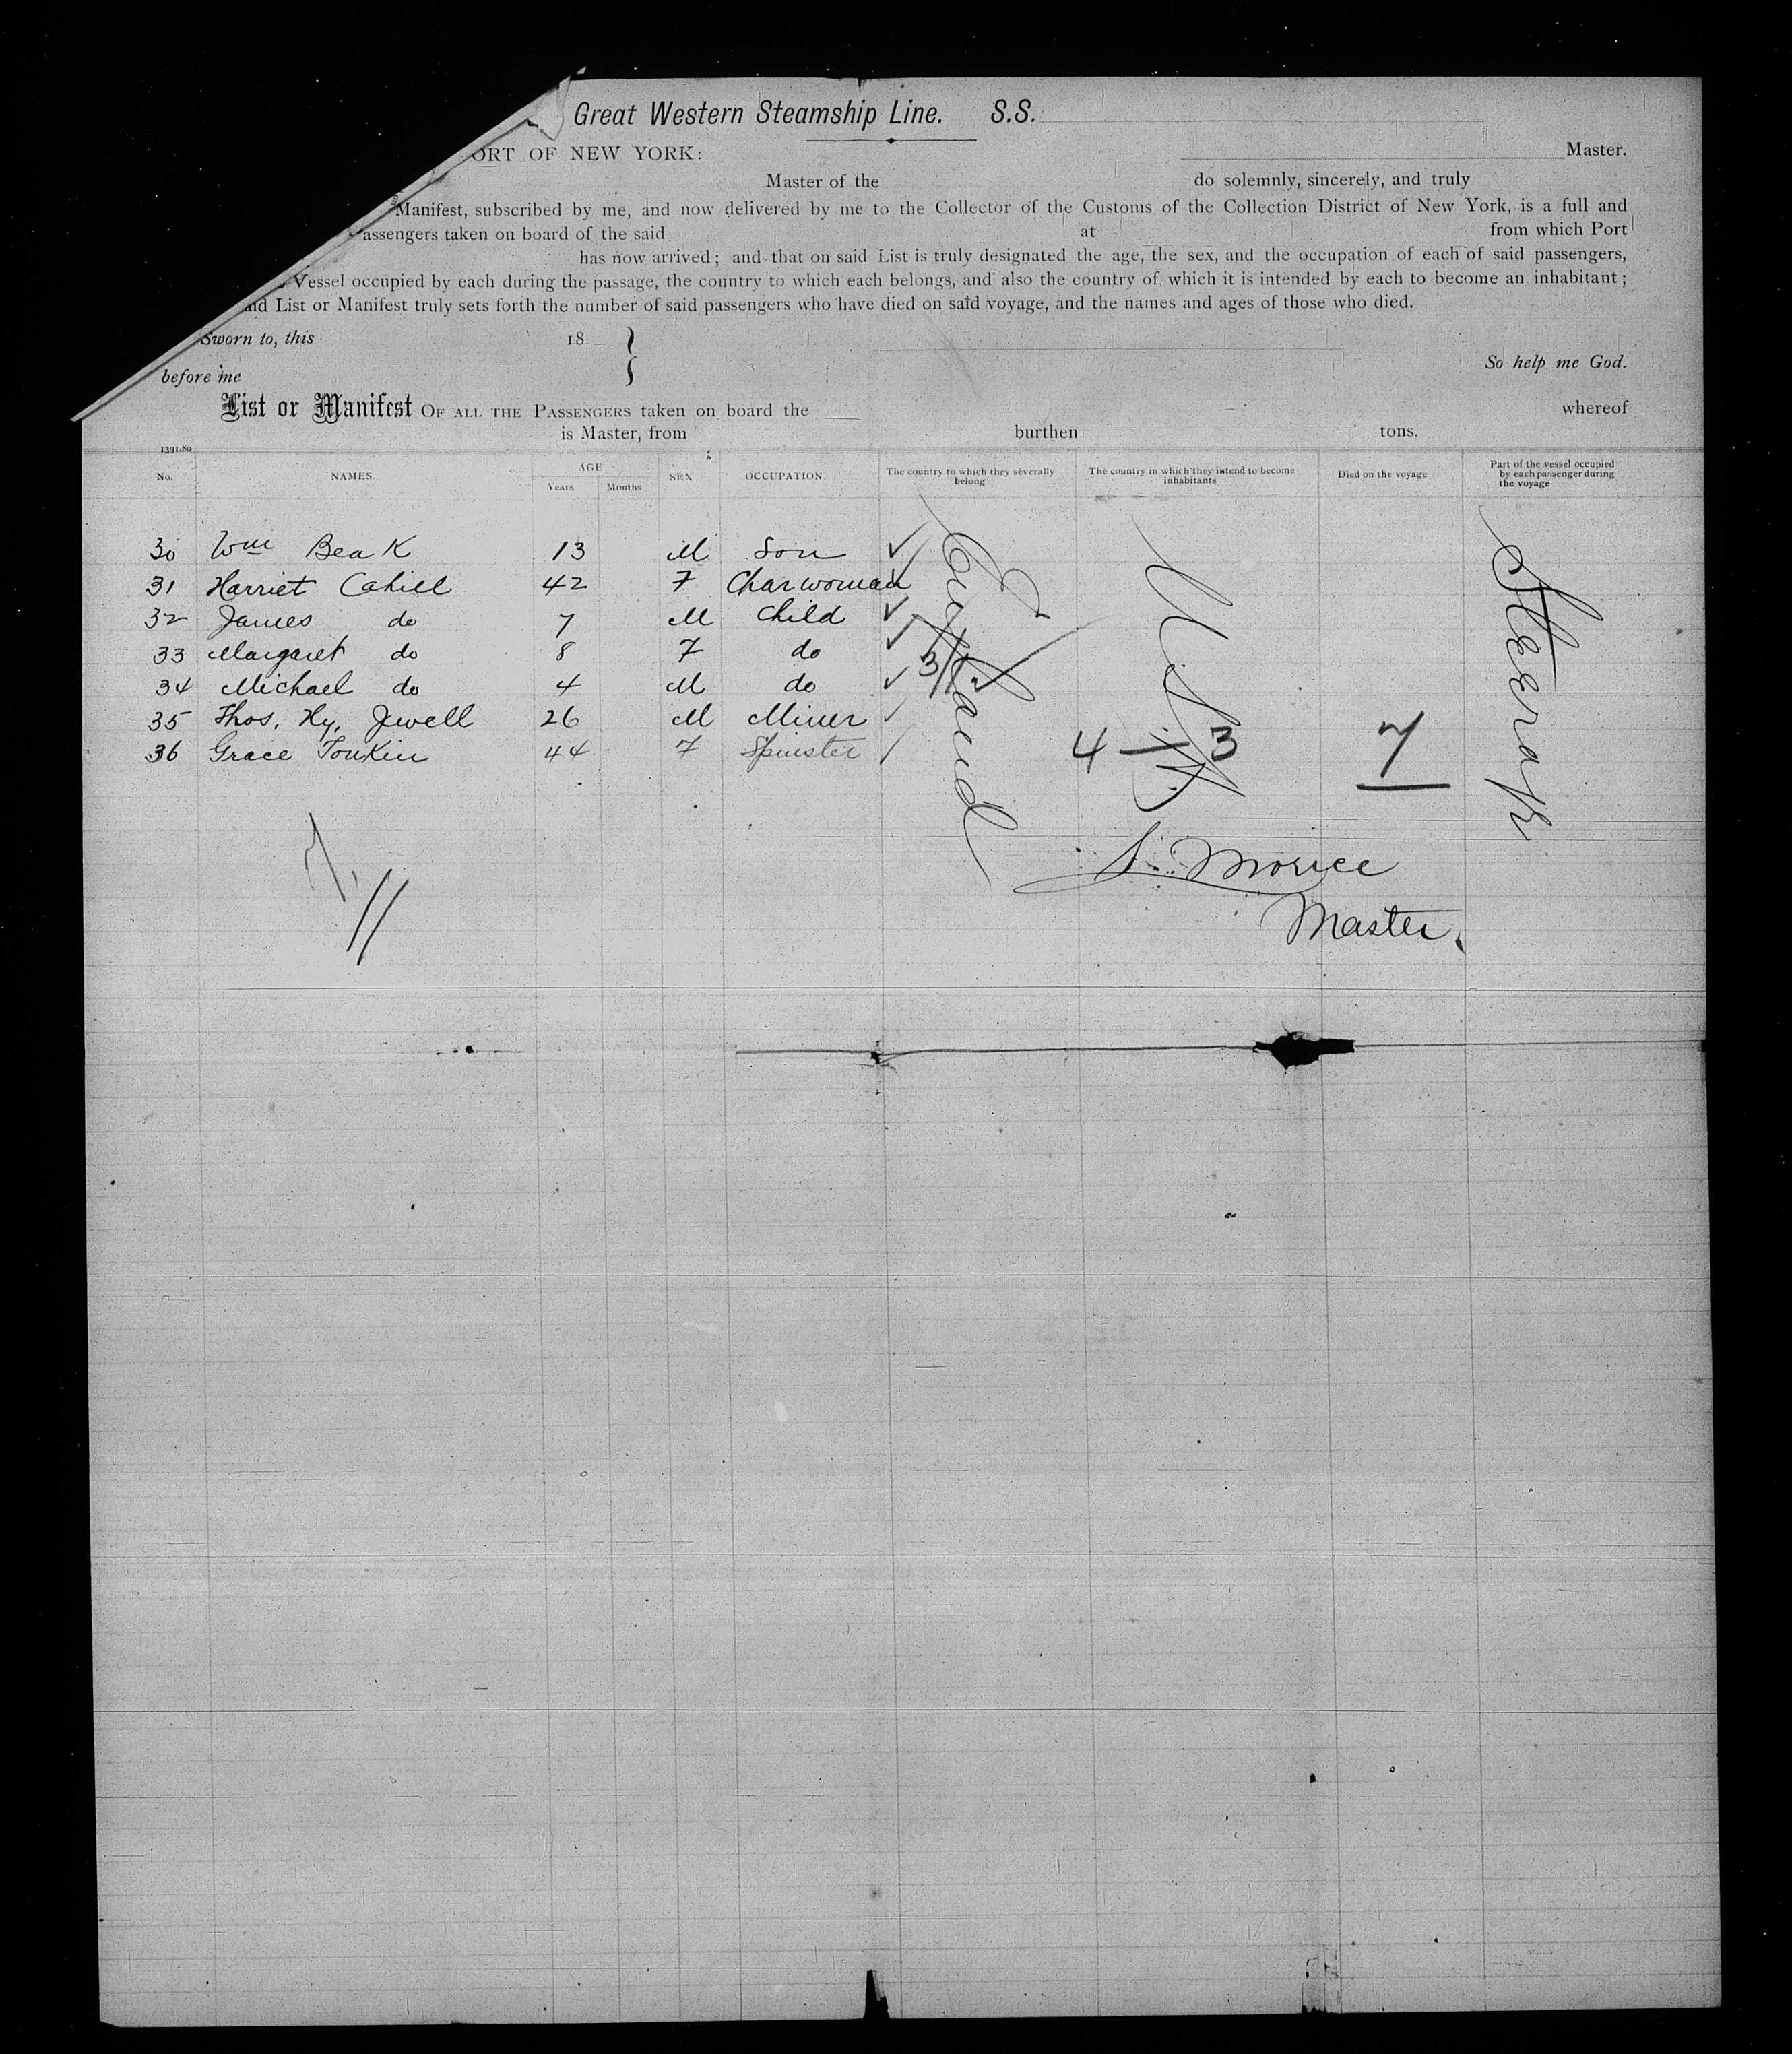 Great Western Steamship Line. S.S.
ORT OF NEW YORK: Master.
Master of the do solemnly, sincerely, and truly
Manifest, subscribed by me, and now delivered by me to the Collector of the Customs of the Collection District of New York, is a full and
assengers taken on board of the said at from which Port
has now arrived; and that on said List is truly designated the age, the sex, and the occupation of each of said passengers,
Vessel occupied by each during the passage, the country to which each belongs, and also the country of which it is intended by each to become an inhabitant;
aid List or Manifest truly sets forth the number of said passengers who have died on said voyage, and the names and ages of those who died.
Sworn to, this 18
So help me God.
before me
List or Manifest OF ALL THE PASSENGERS taken on board the whereof
is Master, from burthen tons.
1391.80
No. NAMES. AGE Years Months SEX OCCUPATION The country to which they severally belong The country in which they intend to become inhabitants Died on the voyage Part of the vessel occupied by each passenger during the voyage
30 Wm Beak 13 M Son
31 Harriet Cahill 42 F Charwoman
32 James do 7 M Child
33 Margaret do 8 F do
34 Michael do 4 M do
35 Thos. Hy. Jewell 26 M Miner
36 Grace Tonkin 44 F Spinster
England
U.S.A.
Steerage
3/1
4 — 3 7
11
S. Morice
Master.